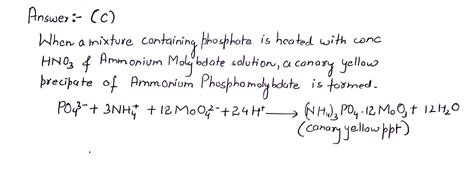 Answer:- (C)
When a mixture containing phosphate is heated with conc
HNO3 & Ammonium Molybdate solution, a canary yellow
precipate of Ammonium Phosphomolybdate is formed.
PO4^3- + 3NH4^+ + 12MoO4^2- + 24H^+ ⟶ (NH4)3PO4·12MoO3 + 12H2O
(canary yellow ppt)